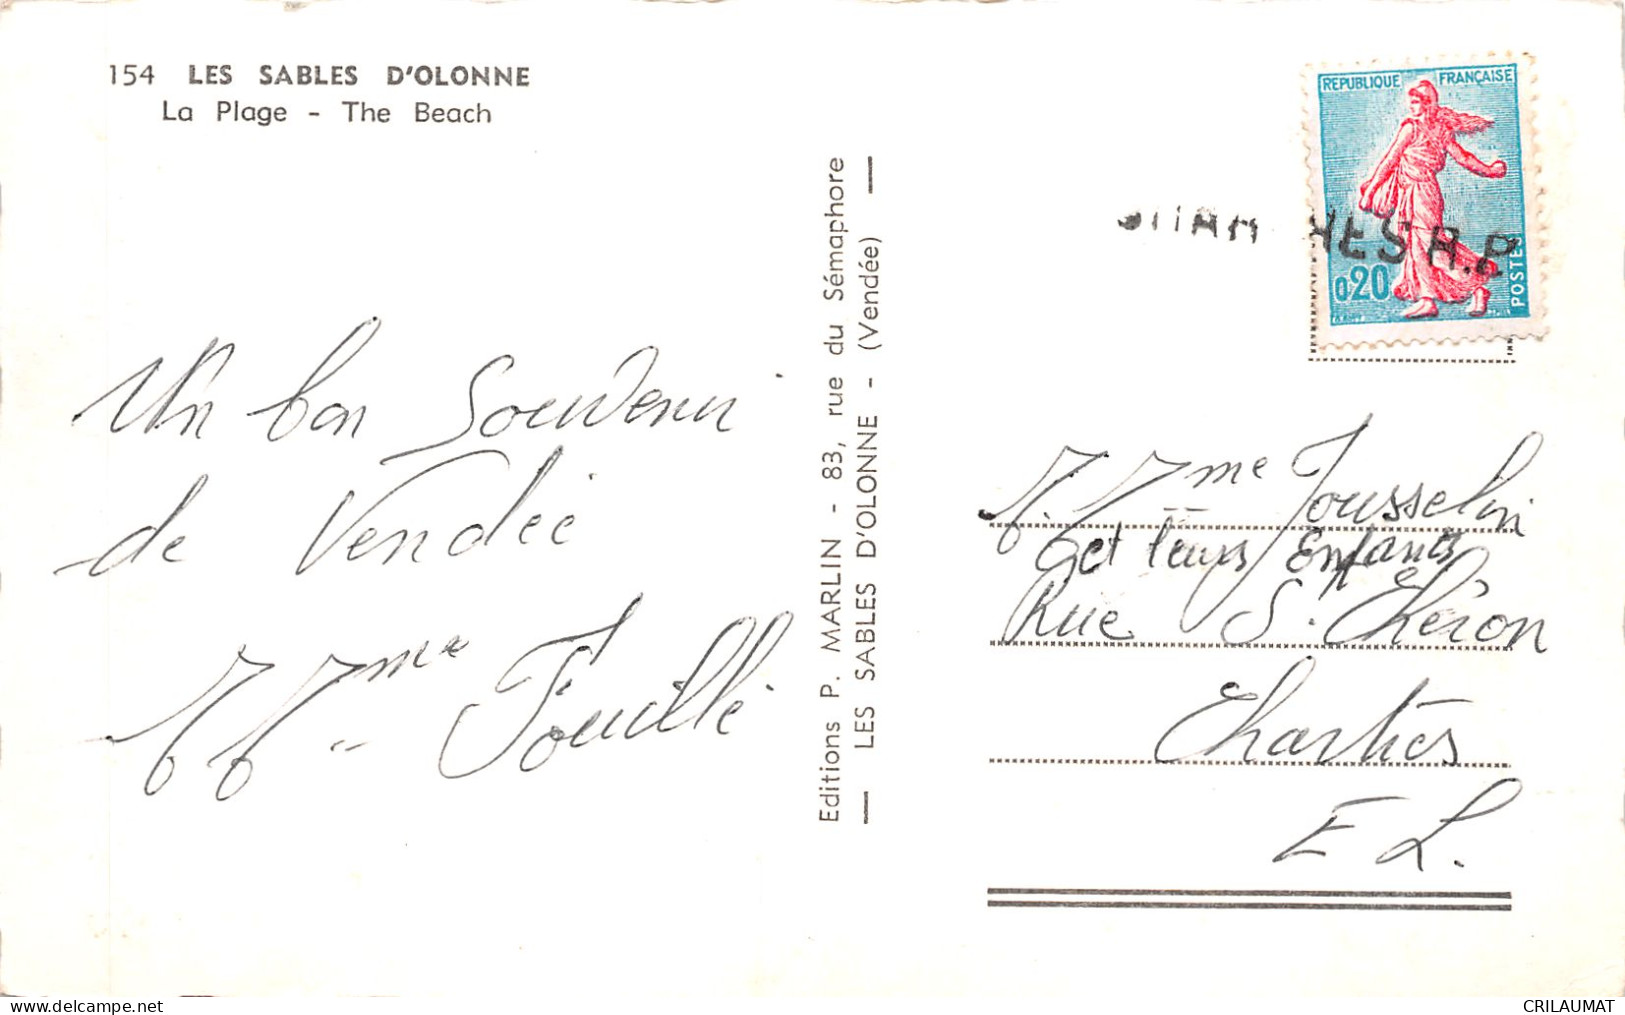 154 LES SABLES D'OLONNE
La Plage - The Beach
REPUBLIQUE FRANÇAISE
0,20
POSTES
Un bon Souvenir
de Vendée
M. Mme Fouillé
Editions P. MARLIN - 83, rue du Sémaphore
LES SABLES D'OLONNE - (Vendée)
M. Mme Jousselin
et leurs Enfants
Rue St. Chéron
Chartres
E L.
www.delcampe.net
CRILAUMAT